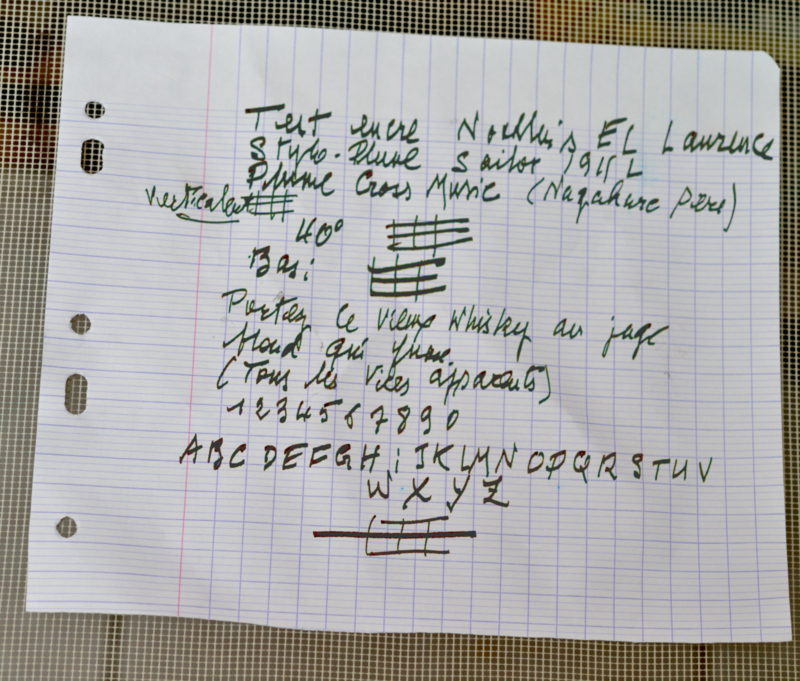 Test encre Noodler's EL Laurence
Stylo-Plume Sailor 1911 L
Plume Cross Music (Nagahara Père)
verticalement
40°
Bas:
Portez ce vieux whisky au juge
blond qui fume.
(Tous les vices apparents)
1 2 3 4 5 6 7 8 9 0
A B C D E F G H i J K L M N O P Q R S T U V
W X Y Z